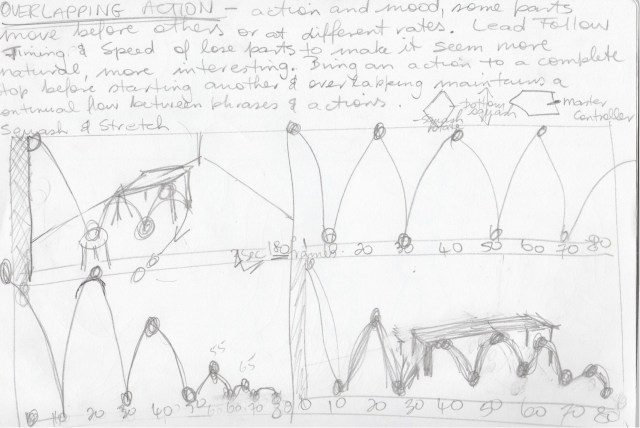 OVERLAPPING ACTION - action and mood, some parts
move before others or at different rates. Lead Follow
Timing & Speed of lose parts to make it seem more
natural, more interesting. Bring an action to a complete
stop before starting another & overlapping maintains a
continual flow between phrases & actions.
bottom squash
Master
Controller
squash
Squash & Stretch
10 20 30 40 50 60 70 80
7 SEC 180 frames
55 65
10 20 30 40 50 60 70 80
0 10 20 30 40 50 60 70 80